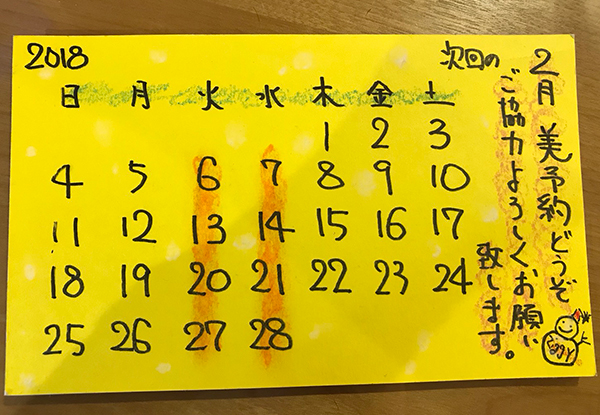 2018
日 月 火 水 木 金 土
1 2 3
4 5 6 7 8 9 10
11 12 13 14 15 16 17
18 19 20 21 22 23 24
25 26 27 28
2月 美予約どうぞ
次回の
ご協力よろしくお願い
致します。
Eggy